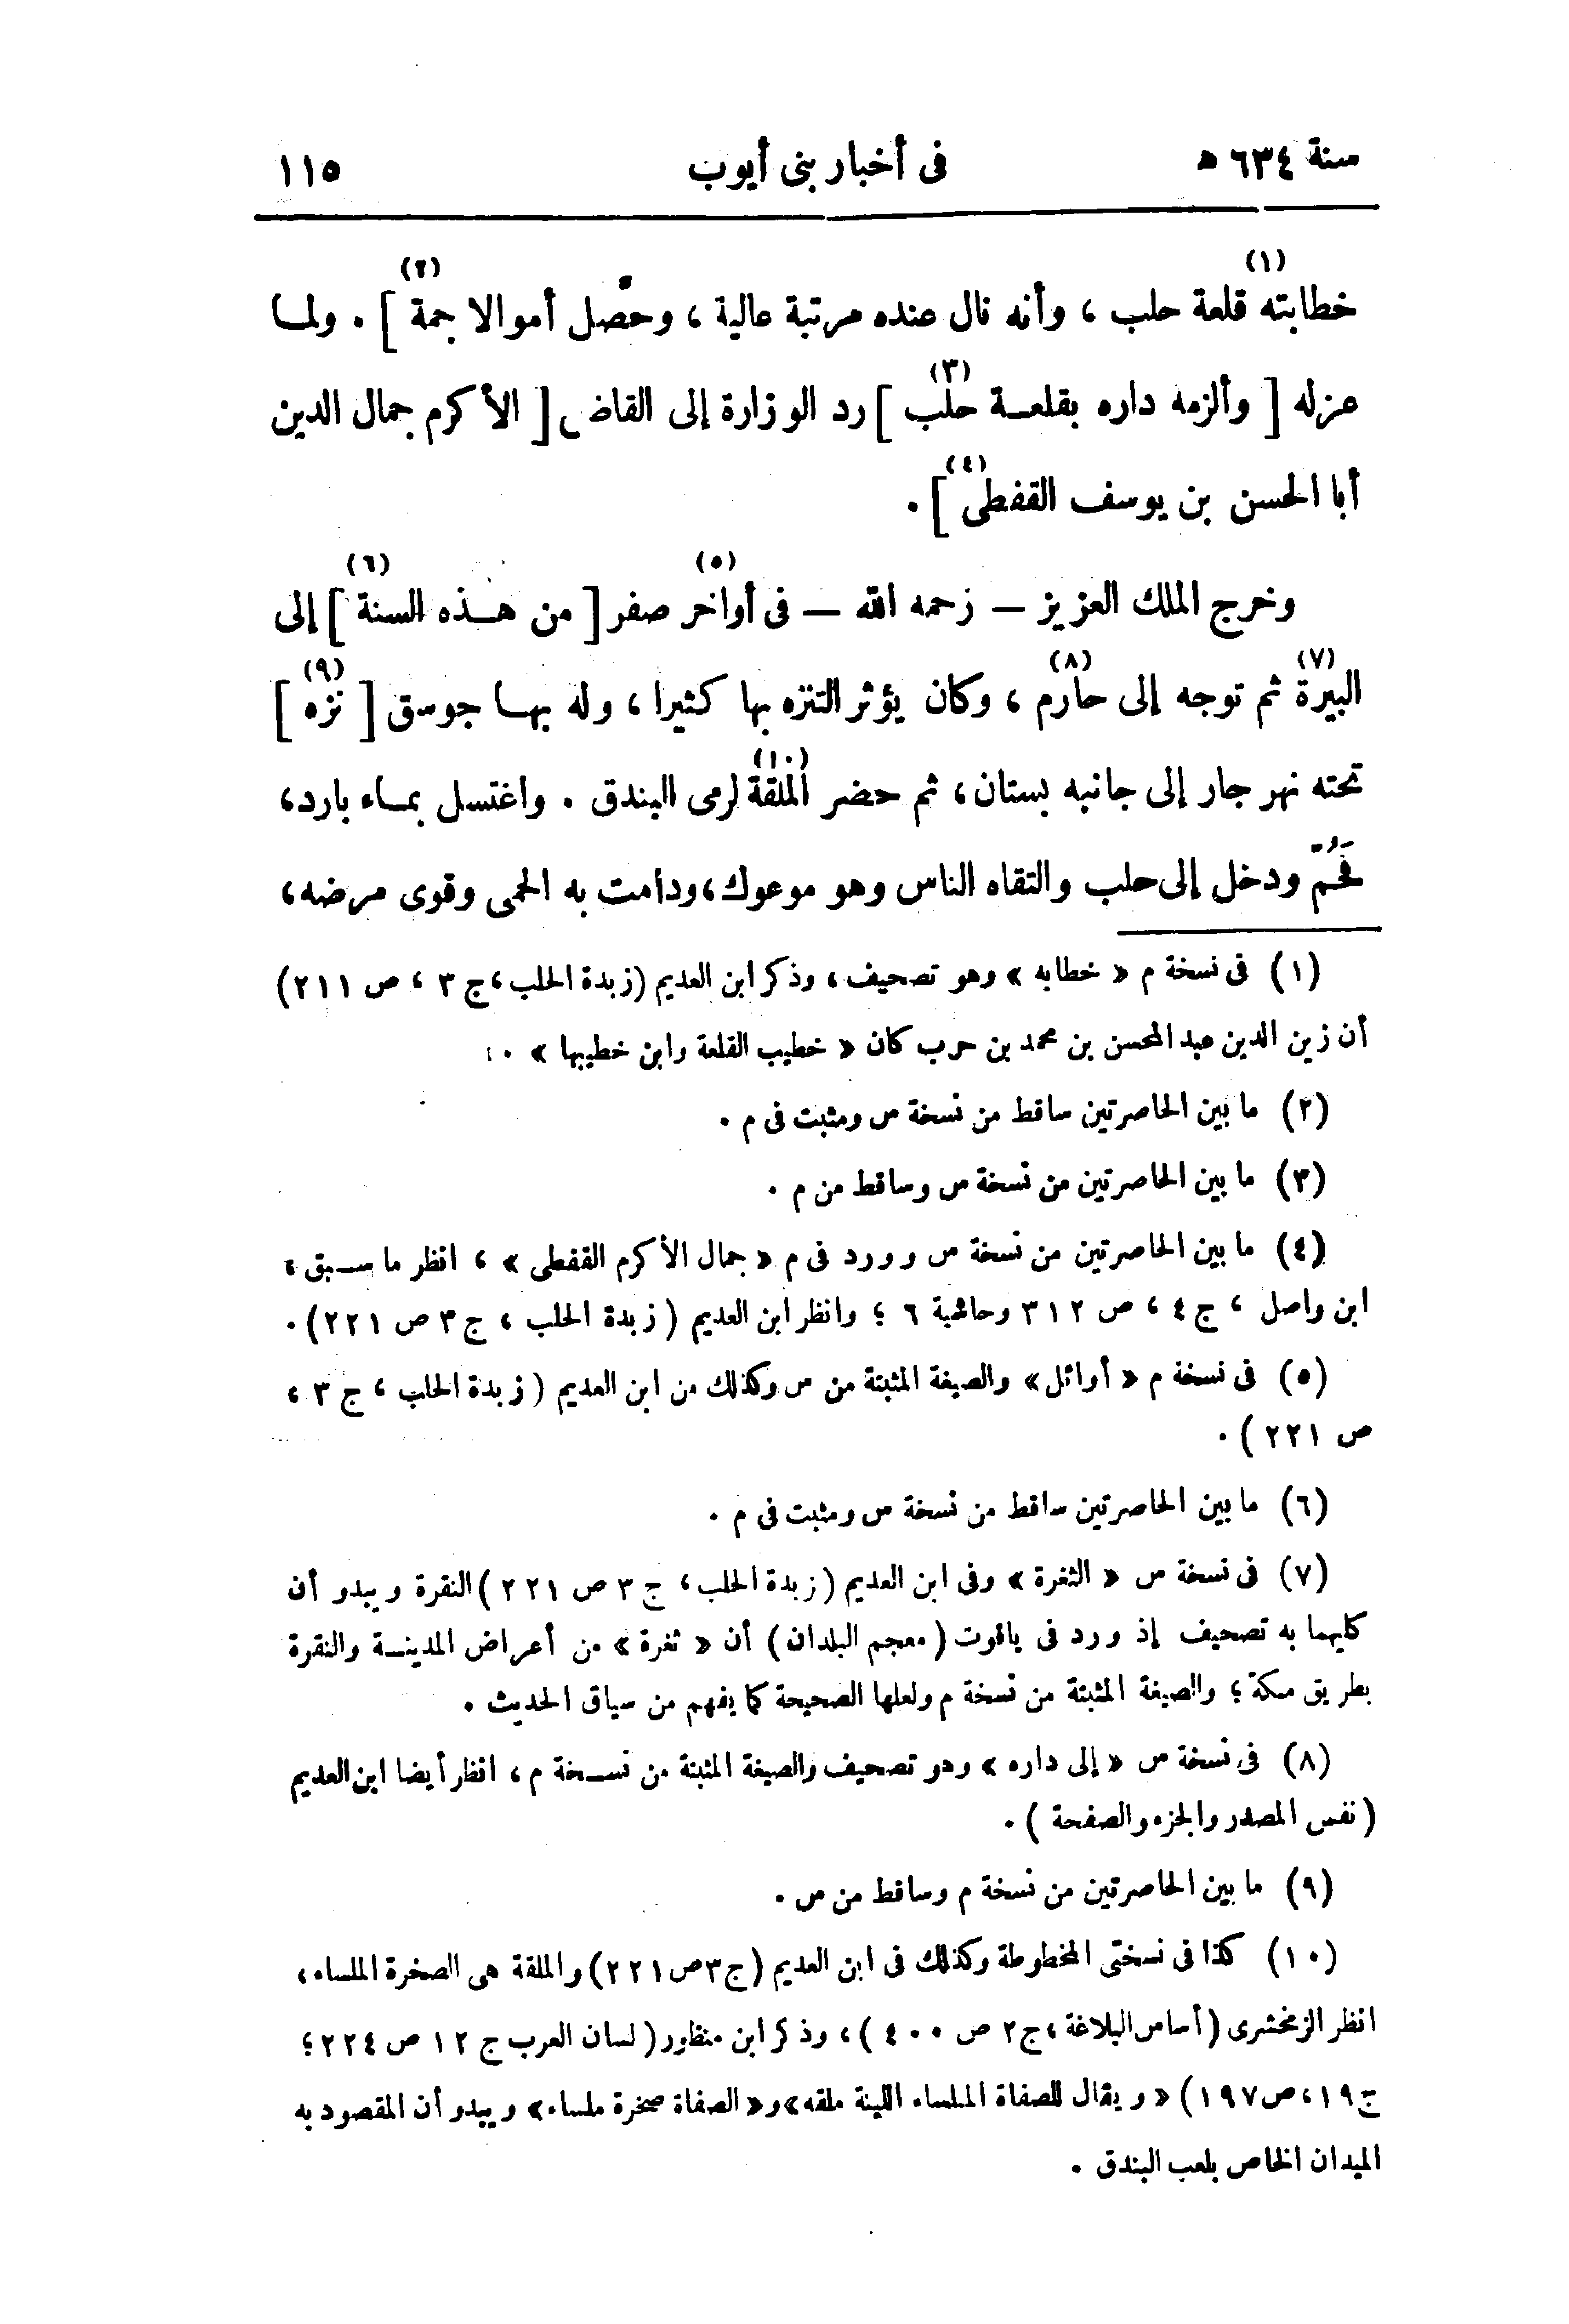 سنة ٦٣٤ هـ فى أخبار بنى أيوب ١١٥
خطابته (١) قلعة حلب ، وأنه نال عنده مرتبة عالية ، وحصّل أموالا جمة (٢) ] . ولما
عزله [ وألزمه داره بقلعة حلب (٣) ] رد الوزارة إلى القاضى [ الأكرم جمال الدين
أبا الحسن بن يوسف القفطى (٤) ] .
وخرج الملك العزيز — رحمه الله — فى أواخر (٥) صفر [ من هذه السنة (٦) ] إلى
البيرة (٧) ثم توجه إلى حارم (٨) ، وكان يؤثر التنزه بها كثيرا ، وله بها جوسق [ نزه (٩) ]
تحته نهر جار إلى جانبه بستان ، ثم حضر الملقة (١٠) لرمى البندق . واغتسل بماء بارد ،
فَحُمّ ودخل إلى حلب والتقاه الناس وهو موعوك ، ودامت به الحمى وقوى مرضه ،
(١) فى نسخة م « خطابه » وهو تصحيف ، وذكر ابن العديم (زبدة الحلب ، ج ٣ ، ص ٢١١)
أن زين الدين عبد المحسن بن محمد بن حرب كان « خطيب القلعة وابن خطيبها » .
(٢) ما بين الحاصرتين ساقط من نسخة س ومثبت فى م .
(٣) ما بين الحاصرتين من نسخة س وساقط من م .
(٤) ما بين الحاصرتين من نسخة س وورد فى م « جمال الأكرم القفطى » ، انظر ما سبق ،
ابن واصل ، ج ٤ ، ص ٣١٢ وحاشية ٦ ؛ وانظر ابن العديم ( زبدة الحلب ، ج ٣ ص ٢٢١) .
(٥) فى نسخة م « أوائل» والصيغة المثبتة من س وكذلك من ابن العديم ( زبدة الحلب ، ج ٣ ،
ص ٢٢١ ) .
(٦) ما بين الحاصرتين ساقط من نسخة س ومثبت فى م .
(٧) فى نسخة س « الثغرة » وفى ابن العديم ( زبدة الحلب ، ج ٣ ص ٢٢١ ) النقرة ويبدو أن
كليهما به تصحيف إذ ورد فى ياقوت ( معجم البلدان ) أن « ثغرة » من أعراض المدينة والنقرة
بطريق مكة ؛ والصيغة المثبتة من نسخة م ولعلها الصحيحة كما يفهم من سياق الحديث .
(٨) فى نسخة س « إلى داره » وهو تصحيف والصيغة المثبتة من نسخة م ، انظر أيضا ابن العديم
( نفس المصدر والجزء والصفحة ) .
(٩) ما بين الحاصرتين من نسخة م وساقط من س .
(١٠) كذا فى نسختى المخطوطة وكذلك فى ابن العديم (ج٣ ص ٢٢١) والملقة هى الصخرة الملساء ،
انظر الزمخشرى (أساس البلاغة ، ج٢ ص ٤٠٠ ) ، وذكر ابن منظور ( لسان العرب ج ١٢ ص ٢٢٤ ؛
ج١٩ ، ص ١٩٧) « ويقال للصفاة الملساء اللينة ملقه» و« الصفاة صخرة ملساء» ويبدو أن المقصود به
الميدان الخاص بلعب البندق .